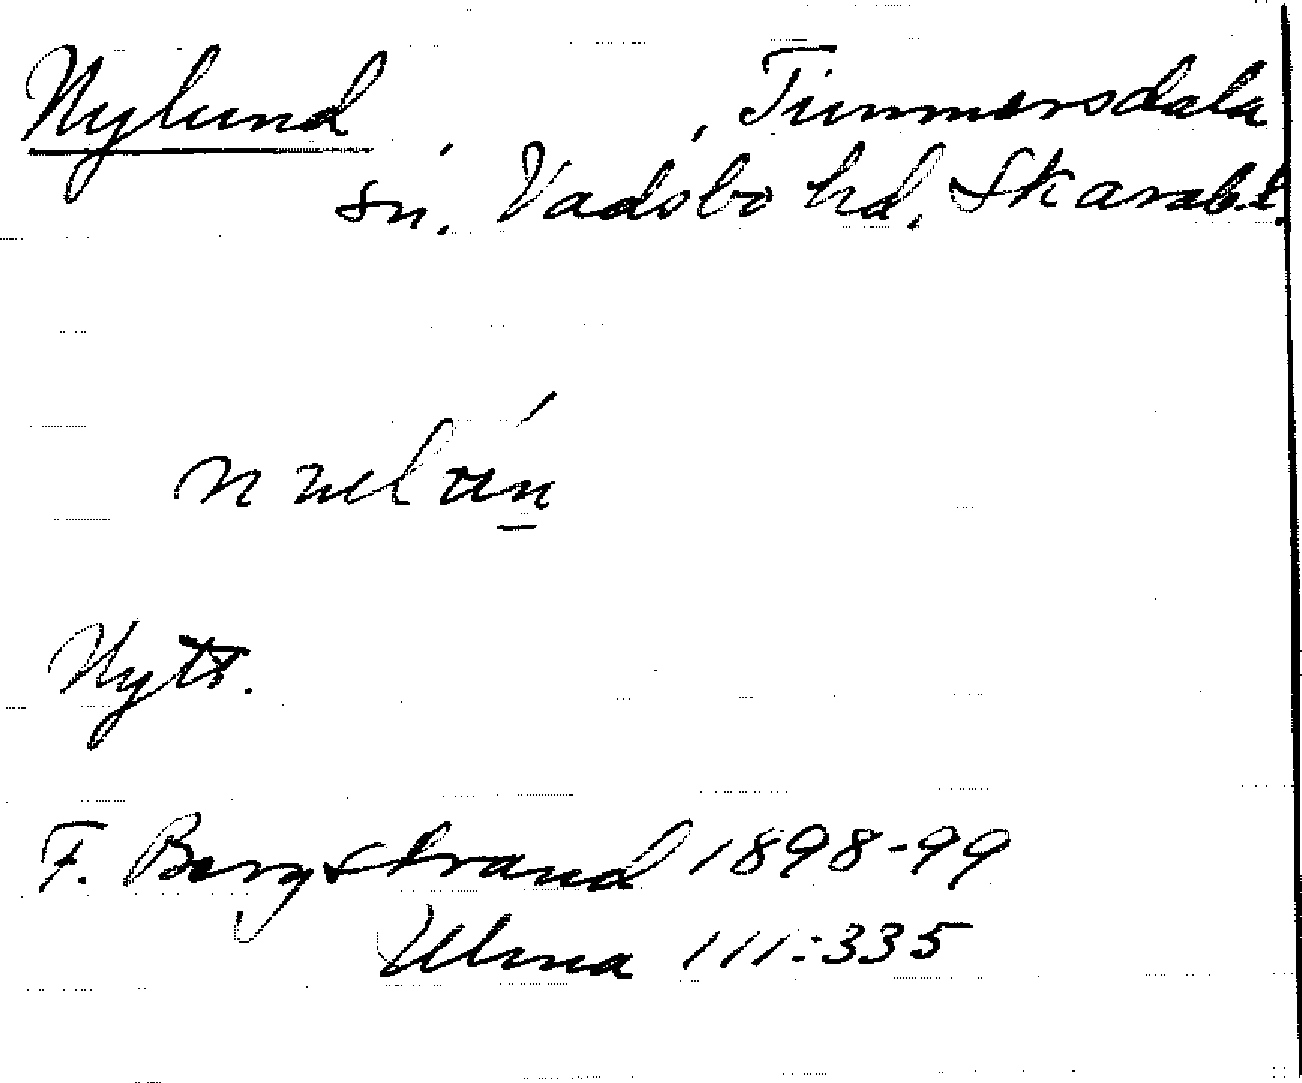 Nylund , Timmersdala
sn. Vadsbo hd. Skarab.l.
Nytt.
F. Bergstrand 1898-99
Ulma 111:335